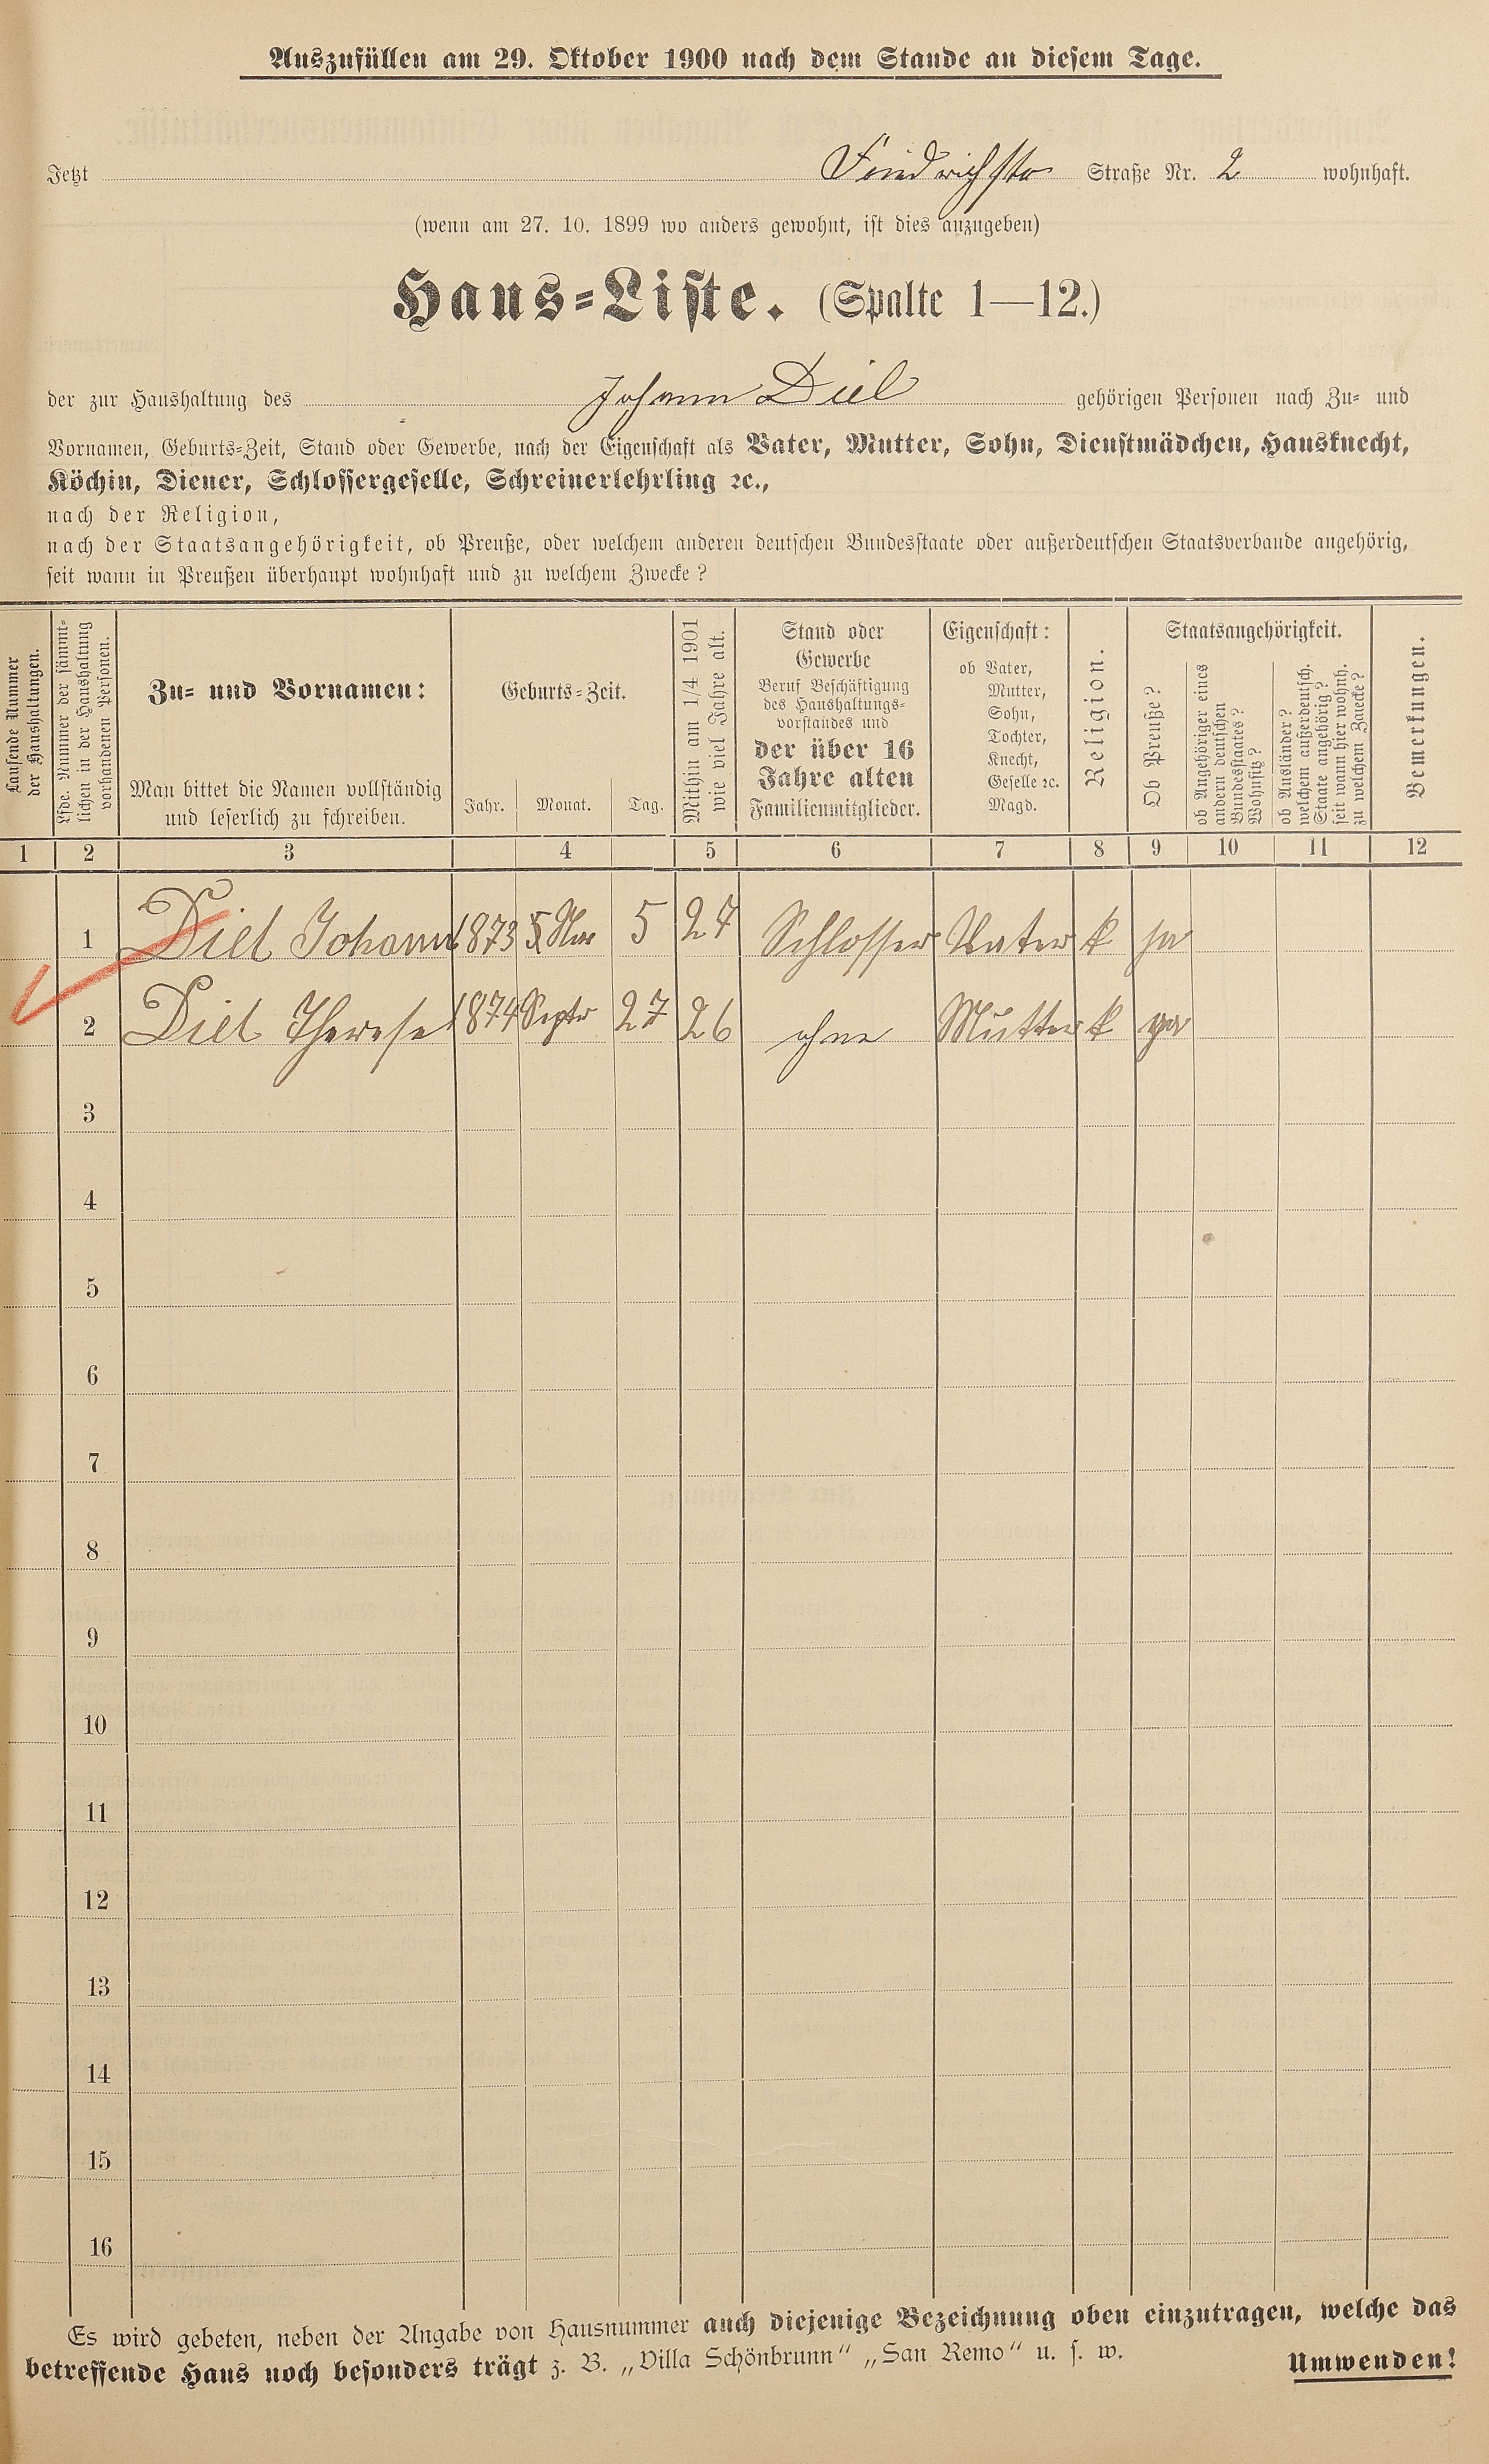 Auszufüllen am 29. Oktober 1900 nach dem Stande an diesem Tage.
Jetzt Friedrichstr Straße Nr. 2 wohnhaft.
(wenn am 27. 10. 1899 wo anders gewohnt, ist dies anzugeben)
Haus-Liste. (Spalte 1—12.)
der zur Haushaltung des Johann Diel gehörigen Personen nach Zu- und
Vornamen, Geburts-Zeit, Stand oder Gewerbe, nach der Eigenschaft als Vater, Mutter, Sohn, Dienstmädchen, Hausknecht,
Köchin, Diener, Schlossergeselle, Schreinerlehrling ꝛc.,
nach der Religion,
nach der Staatsangehörigkeit, ob Preuße, oder welchem anderen deutschen Bundesstaate oder außerdeutschen Staatsverbande angehörig,
seit wann in Preußen überhaupt wohnhaft und zu welchem Zwecke?
Laufende Nummer
der Haushaltungen.
Lfde. Nummer der sämmt-
lichen in der Haushaltung
vorhandenen Personen.
Zu- und Vornamen:
Man bittet die Namen vollständig
und leserlich zu schreiben.
Geburts-Zeit.
Jahr. Monat. Tag.
Mithin am 1/4 1901
wie viel Jahre alt.
Stand oder
Gewerbe
Beruf Beschäftigung
des Haushaltungs-
vorstandes und
der über 16
Jahre alten
Familienmitglieder.
Eigenschaft:
ob Vater,
Mutter,
Sohn,
Tochter,
Knecht,
Geselle ꝛc.
Magd.
Religion.
Staatsangehörigkeit.
Ob Preuße?
ob Angehöriger eines
andern deutschen
Bundesstaates?
Wohnsitz?
ob Ausländer?
welchem außerdeutsch.
Staate angehörig?
seit wann hier wohnh.
zu welchem Zwecke?
Bemerkungen.
1 2 3 4 5 6 7 8 9 10 11 12
1 Diel Johann 1873 5 Mar 5 27 Schlosser Vater k ja
2 Diel Therese 1874 Septr 27 26 ohne Mutter k ja
3
4
5
6
7
8
9
10
11
12
13
14
15
16
Es wird gebeten, neben der Angabe von Hausnummer auch diejenige Bezeichnung oben einzutragen, welche das
betreffende Haus noch besonders trägt z. B. „Villa Schönbrunn“ „San Remo“ u. s. w.
Umwenden!